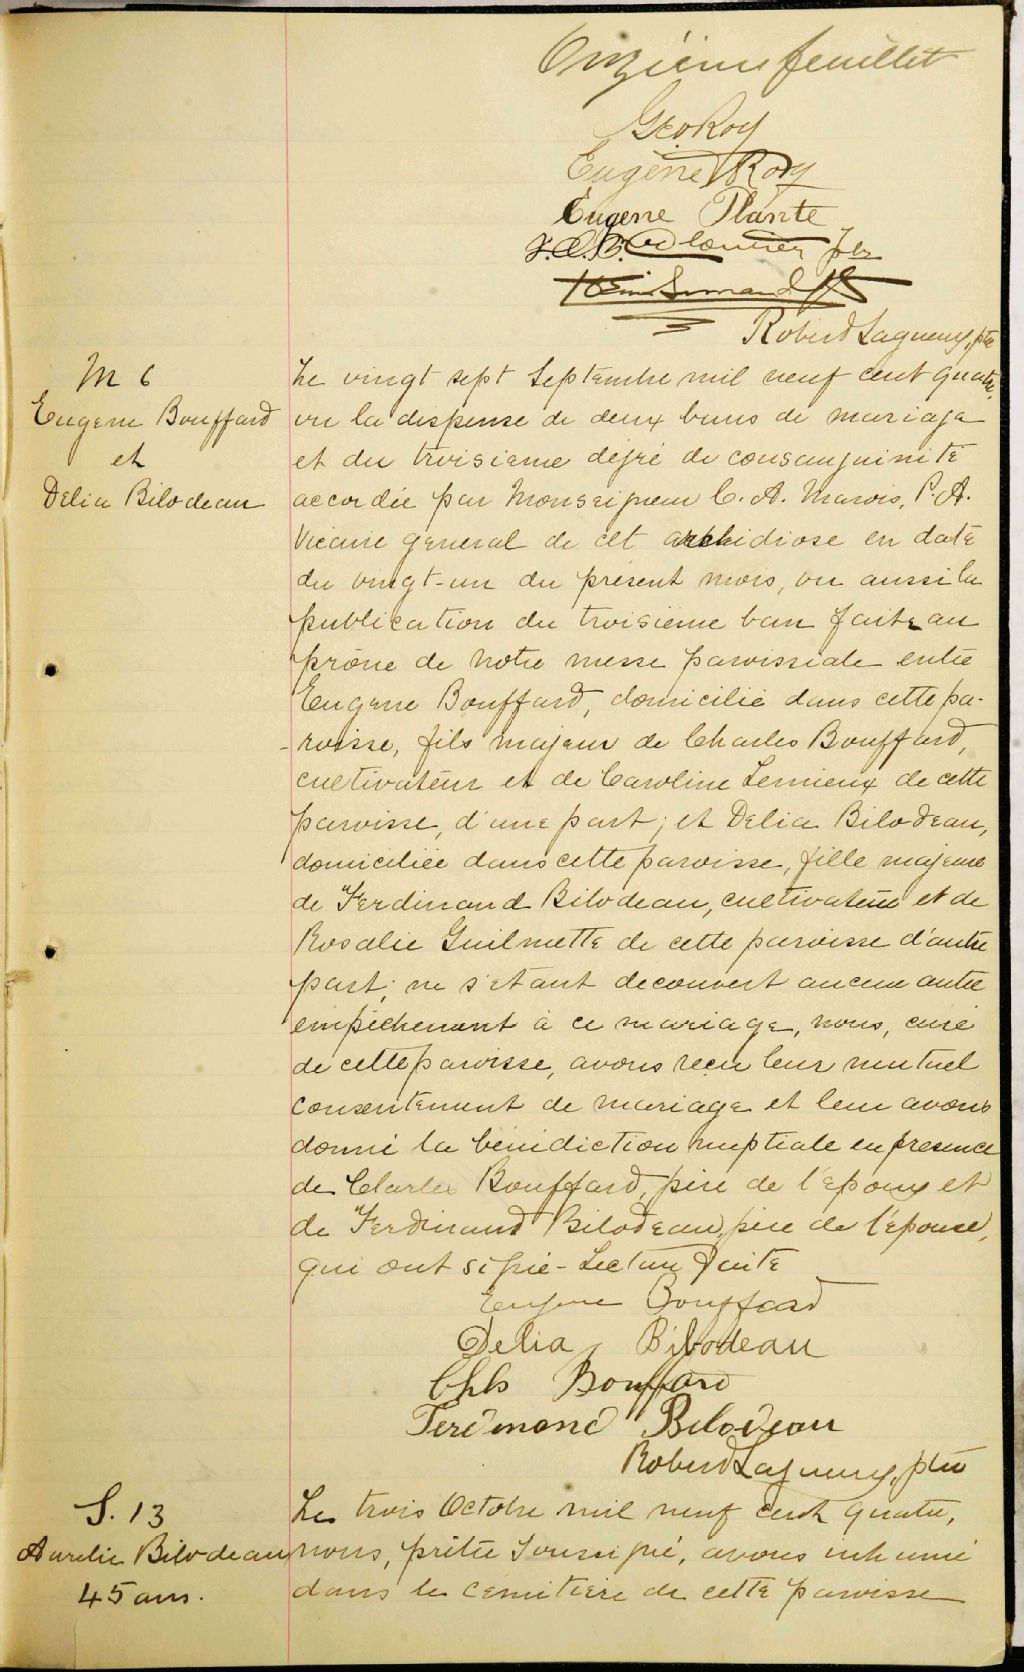 Onzième feuillet
Geo Roy
Eugène Roy
Eugene Plante
J.O.B. Cloutier ptr
Robert Lagueux, ptre
M 6
Eugène Bouffard
et
Délia Bilodeau
Le vingt sept Septembre mil neuf cent quatre,
vu la dispense de deux bans de mariage
et du troisième degré de consanguinité
accordée par Monseigneur C. A. Marois, P. A.
Vicaire général de cet archidiose en date
du vingt-un du présent mois, vu aussi la
publication du troisième ban faite au
prône de notre messe paroissiale entre
Eugène Bouffard, domicilié dans cette pa-
-roisse, fils majeur de Charles Bouffard,
cultivateur et de Caroline Lemieux de cette
paroisse, d'une part; et Délia Bilodeau,
domiciliée dans cette paroisse, fille majeure
de Ferdinand Bilodeau, cultivateur et de
Rosalie Guilmette de cette paroisse d'autre
part; ne s'étant découvert aucun autre
empêchement à ce mariage, nous, curé
de cette paroisse, avons reçu leur mutuel
consentement de mariage et leur avons
donné la bénédiction nuptiale en présence
de Charles Bouffard, père de l'époux et
de Ferdinand Bilodeau, père de l'épouse,
qui ont signé - Lecture faite
Eugène Bouffard
Delia Bilodeau
Chls Bouffard
Ferdinand Bilodeau
Robert Lagueux, ptre
S. 13
Aurelie Bilodeau
45 ans.
Le trois Octobre mil neuf cent quatre,
nous, prêtre soussigné, avons inhumé
dans le cemitière de cette paroisse